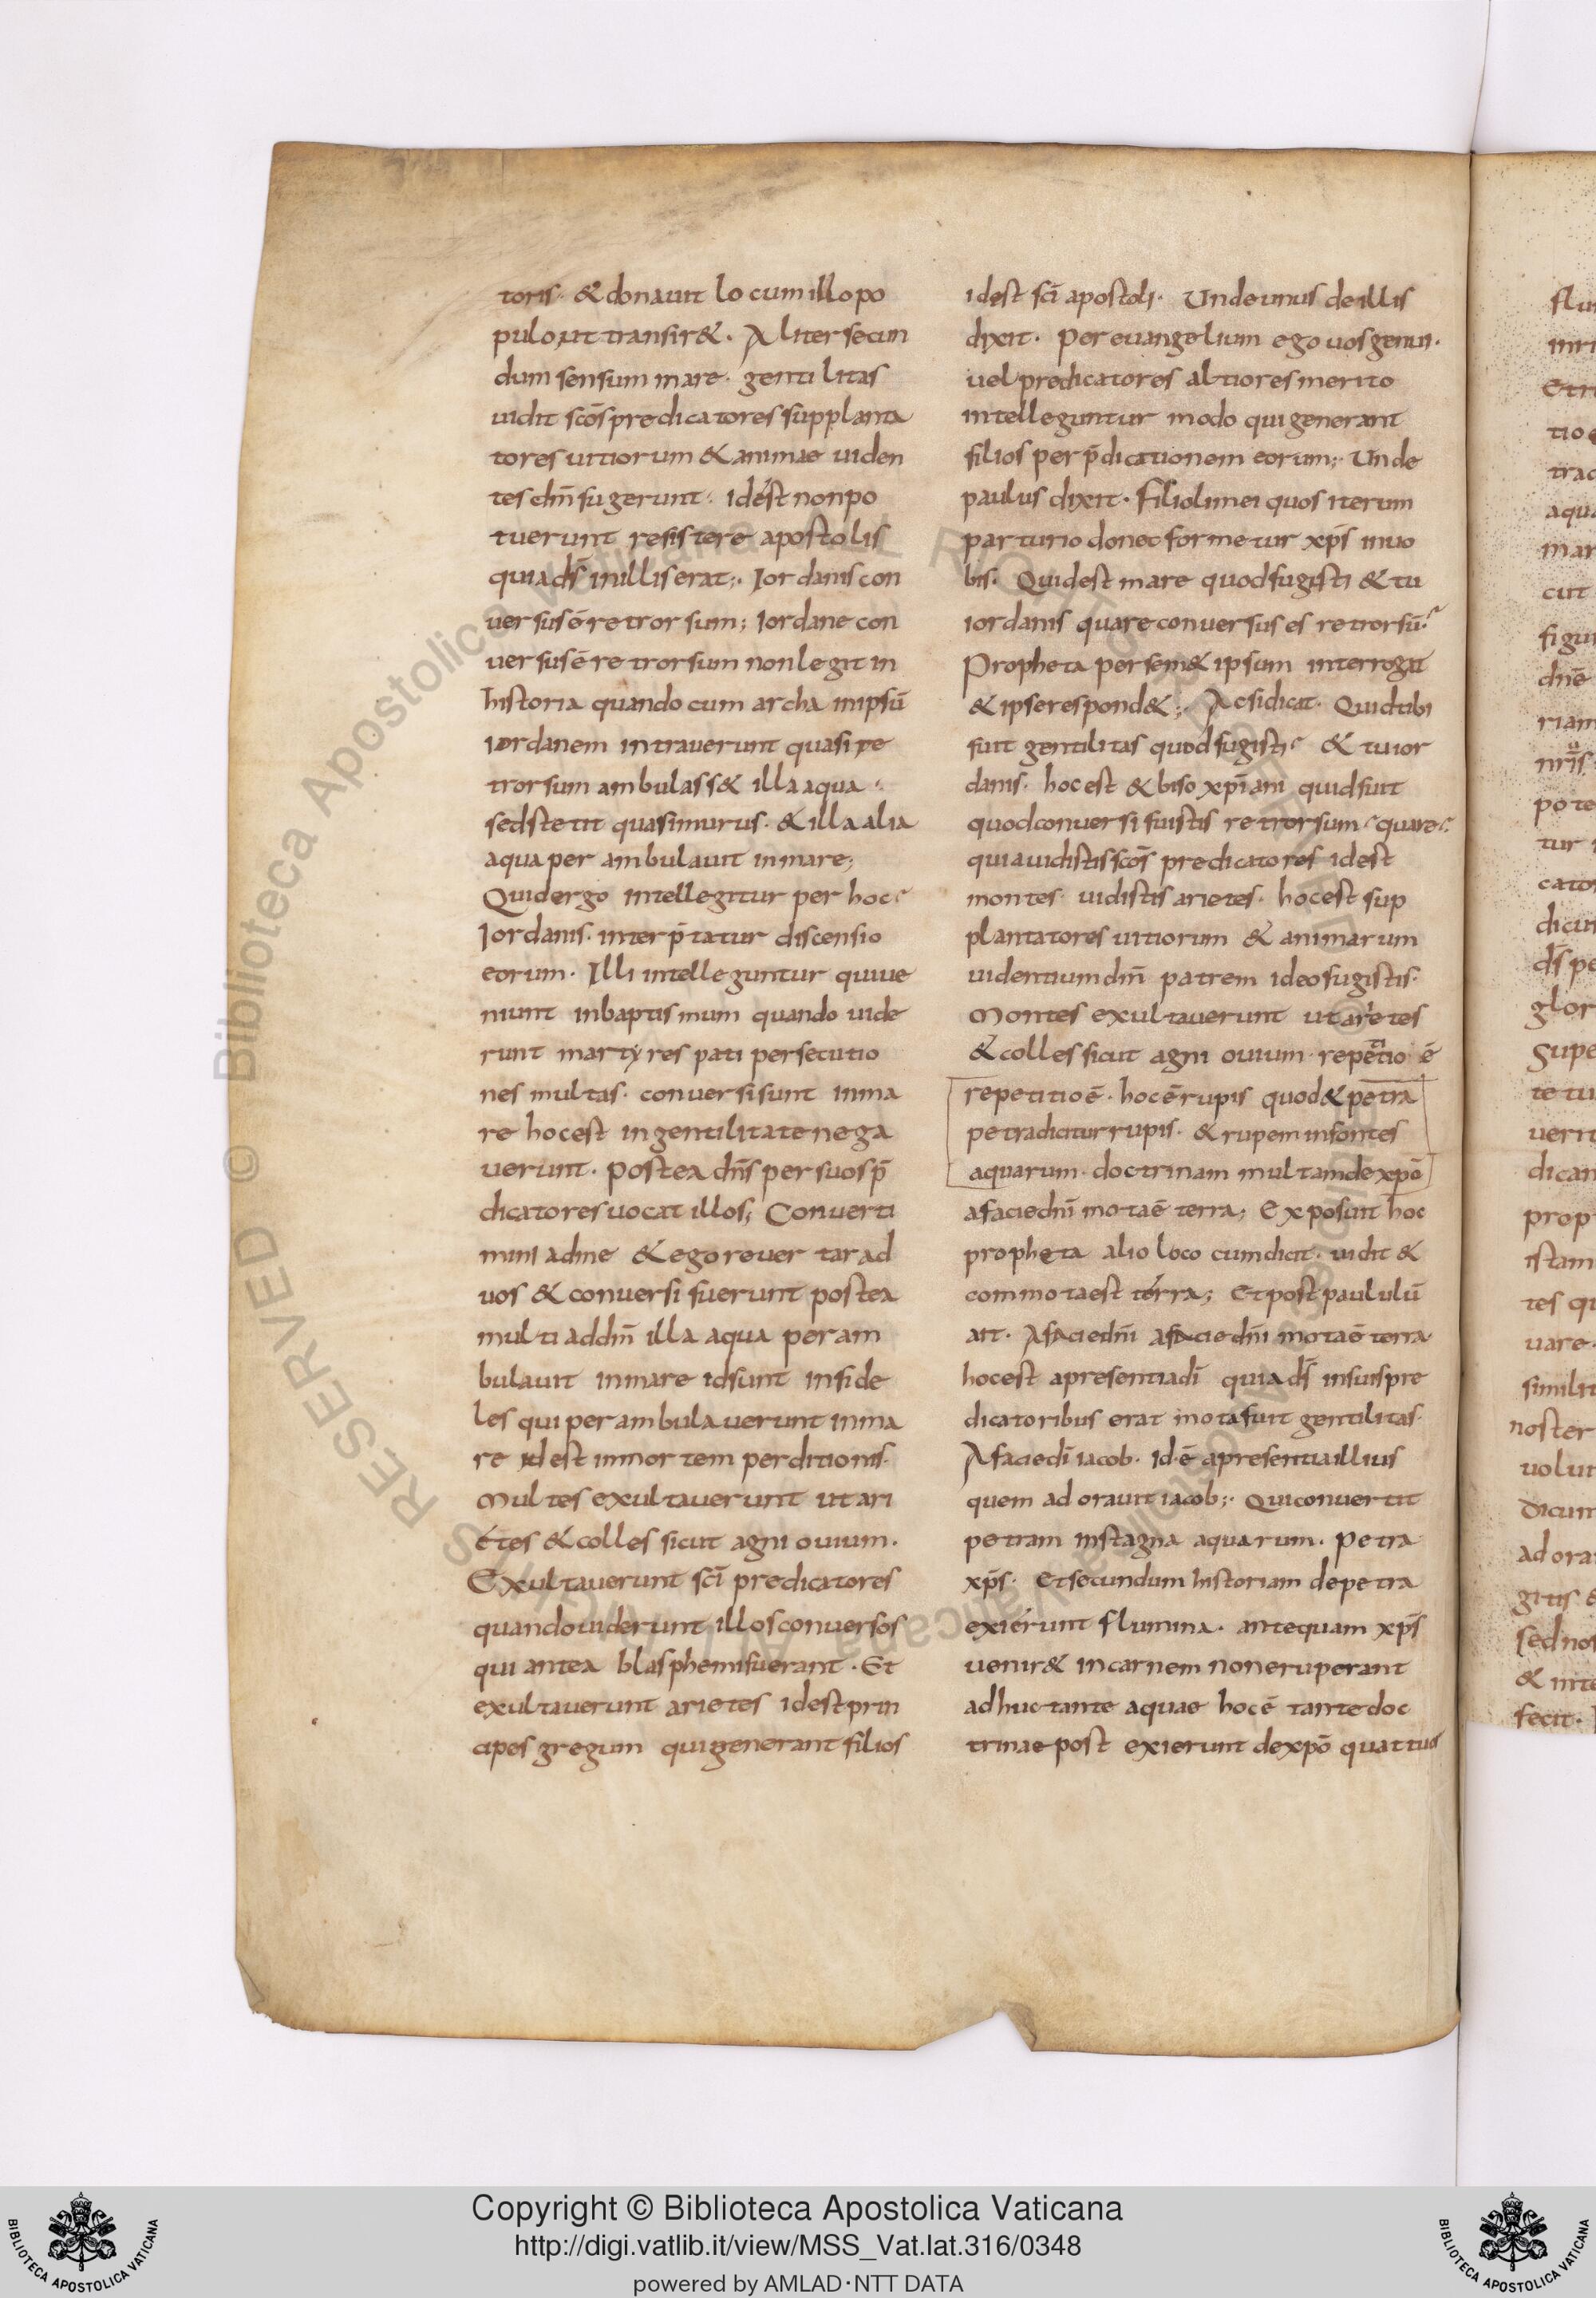 toris· & donauit locum illo po
pulo ut transir&. Aliter secun
dum sensum mare· gentilitas
uidit scōs predicatores supplanta
tores uitiorum & animae uiden
tes dm̄ fugerunt· idést non po
tuerunt resistere apostolis
quia ds̄ in illis erat;· Iordanis con
uersus ē retrorsum; Iordane con
uersus ē retrorsum non legit in
historia quando cum archa in ipsū
iordanem intrauerunt quasi re
trorsum ambulass& illa aqua·
sed stetit quasi murus· & illa alia
aqua perambulauit in mare;
Quid ergo intellegitur per hoc·
Iordanis· interp̄tatur discensio
eorum· Illi intelleguntur qui ue
niunt in baptismum quando uide
runt martyres pati persecutio
nes multas· conuersi sunt in ma
re hoc est in gentilitate nega
uerunt· postea dn̄s per suos p̄
dicatores uocat illos; Conuerti
mini ad me & ego reuertar ad
uos & conuersi fuerunt postea
multi ad dm̄ illa aqua peram
bulauit in mare id sunt infide
les qui perambulauerunt in ma
re idest in mortem perditionis·
Multes exultauerunt ut ari
étes & colles sicut agni ouium·
Exultauerunt sci̅ predicatores
quando uiderunt illos conuersos
qui antea blasphemi fuerant· Et
exultauerunt arietes idest prin
cipes gregum qui generant filios
idest sci̅ apostoli· Unde unus de illis
dixit· per euangelium ego uos genui·
uel predicatores altiores merito
intelleguntur modo qui generant
filios per p̄dicationem eorum;· Unde
paulus dixit· filioli mei quos iterum
parturio donec formetur xps̄ in uo
bis· Quid est mare quod fugisti & tu
iordanis quare conuersus es retrorsū·
Propheta per sem& ipsum interrogat
& ipse respond&;· Ac si dicat· Quid tibi
fuit gentilitas quod fugisti· & tu ior
danis· hoc est & biso xpi̅ani quid fuit
quod conuersi fuistis retrorsum· quare·
quia uidistis scōs predicatores idest
montes· uidistis arietes· hoc est sup
plantatores uitiorum & animarum
uidentium dm̄ patrem ideo fugistis·
Montes exultauerunt ut arietes
& colles sicut agni ouium· repetitio ē
repetitio ē· hoc ē rupis quod & petra
petra dicitur rupis· & rupem in fontes
aquarum· doctrinam multam de xpō
a facie dni̅ mota ē terra; Exposuit hoc
propheta alio loco cum dicit· uidit &
commota est térra; Et post paululū
ait· A facie dni̅ a facie dni̅ mota ē terra·
hoc est a presentia di̅ quia ds̄ in suis pre
dicatoribus erat mota fuit gentilitas·
A facie di̅ iacob· id·ē a presentia illius
quem adorauit iacob;· Qui conuertit
petram in stagna aquarum· petra
xps̄· Et secundum historiam de petra
exiérunt flumina· antequam xps̄
uenir& in carnem non eruperant
adhuc tante aquae hoc ē tante doc
trinae post exierunt de xpō quattuor
Copyright © Biblioteca Apostolica Vaticana
http://digi.vatlib.it/view/MSS_Vat.lat.316/0348
powered by AMLAD·NTT DATA
BIBLIOTECA APOSTOLICA VATICANA
BIBLIOTECA APOSTOLICA VATICANA